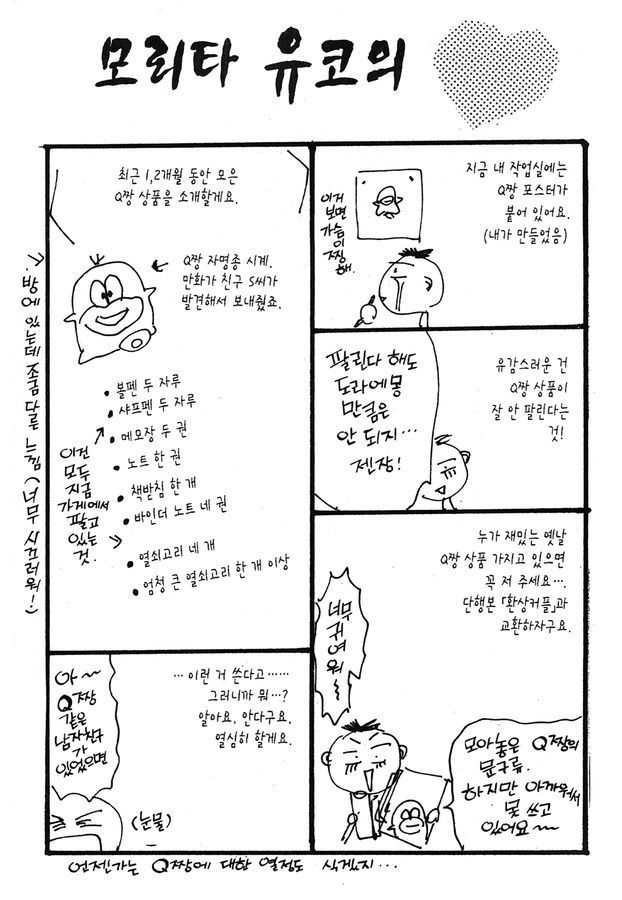 모리타 유코의
최근 1,2개월 동안 모은
Q짱 상품을 소개할게요.
Q짱 자명종 시계.
만화가 친구 S씨가
발견해서 보내줬죠.
방에 있는데 조금 닮은 느낌 (너무 시끄러워!)
볼펜 두 자루
샤프펜 두 자루
메모장 두 권
노트 한 권
책받침 한 개
바인더 노트 네 권
열쇠고리 네 개
엄청 큰 열쇠고리 한 개 이상
이건
모두
지금
가게에서
팔고
있는
것.
지금 내 작업실에는
Q짱 포스터가
붙어 있어요.
(내가 만들었음)
이거
보면
가슴
이
찡
해.
유감스러운 건
Q짱 상품이
잘 안 팔린다는
것!
팔린다 해도
도라에몽
만큼은
안 되지…
젠장!
누가 재밌는 옛날
Q짱 상품 가지고 있으면
꼭 저 주세요….
단행본 「환상커플」과
교환하자구요.
너무
귀여
워~
모아놓은 Q짱의
문구류.
하지만 아까워서
못 쓰고
있어요~
… 이런 거 쓴다고……
그러니까 뭐…?
알아요, 안다구요.
열심히 할게요.
아~
Q짱
같은
남자친구
가
있었으면
(눈물)
언젠가는 Q짱에 대한 열정도 식겠지…